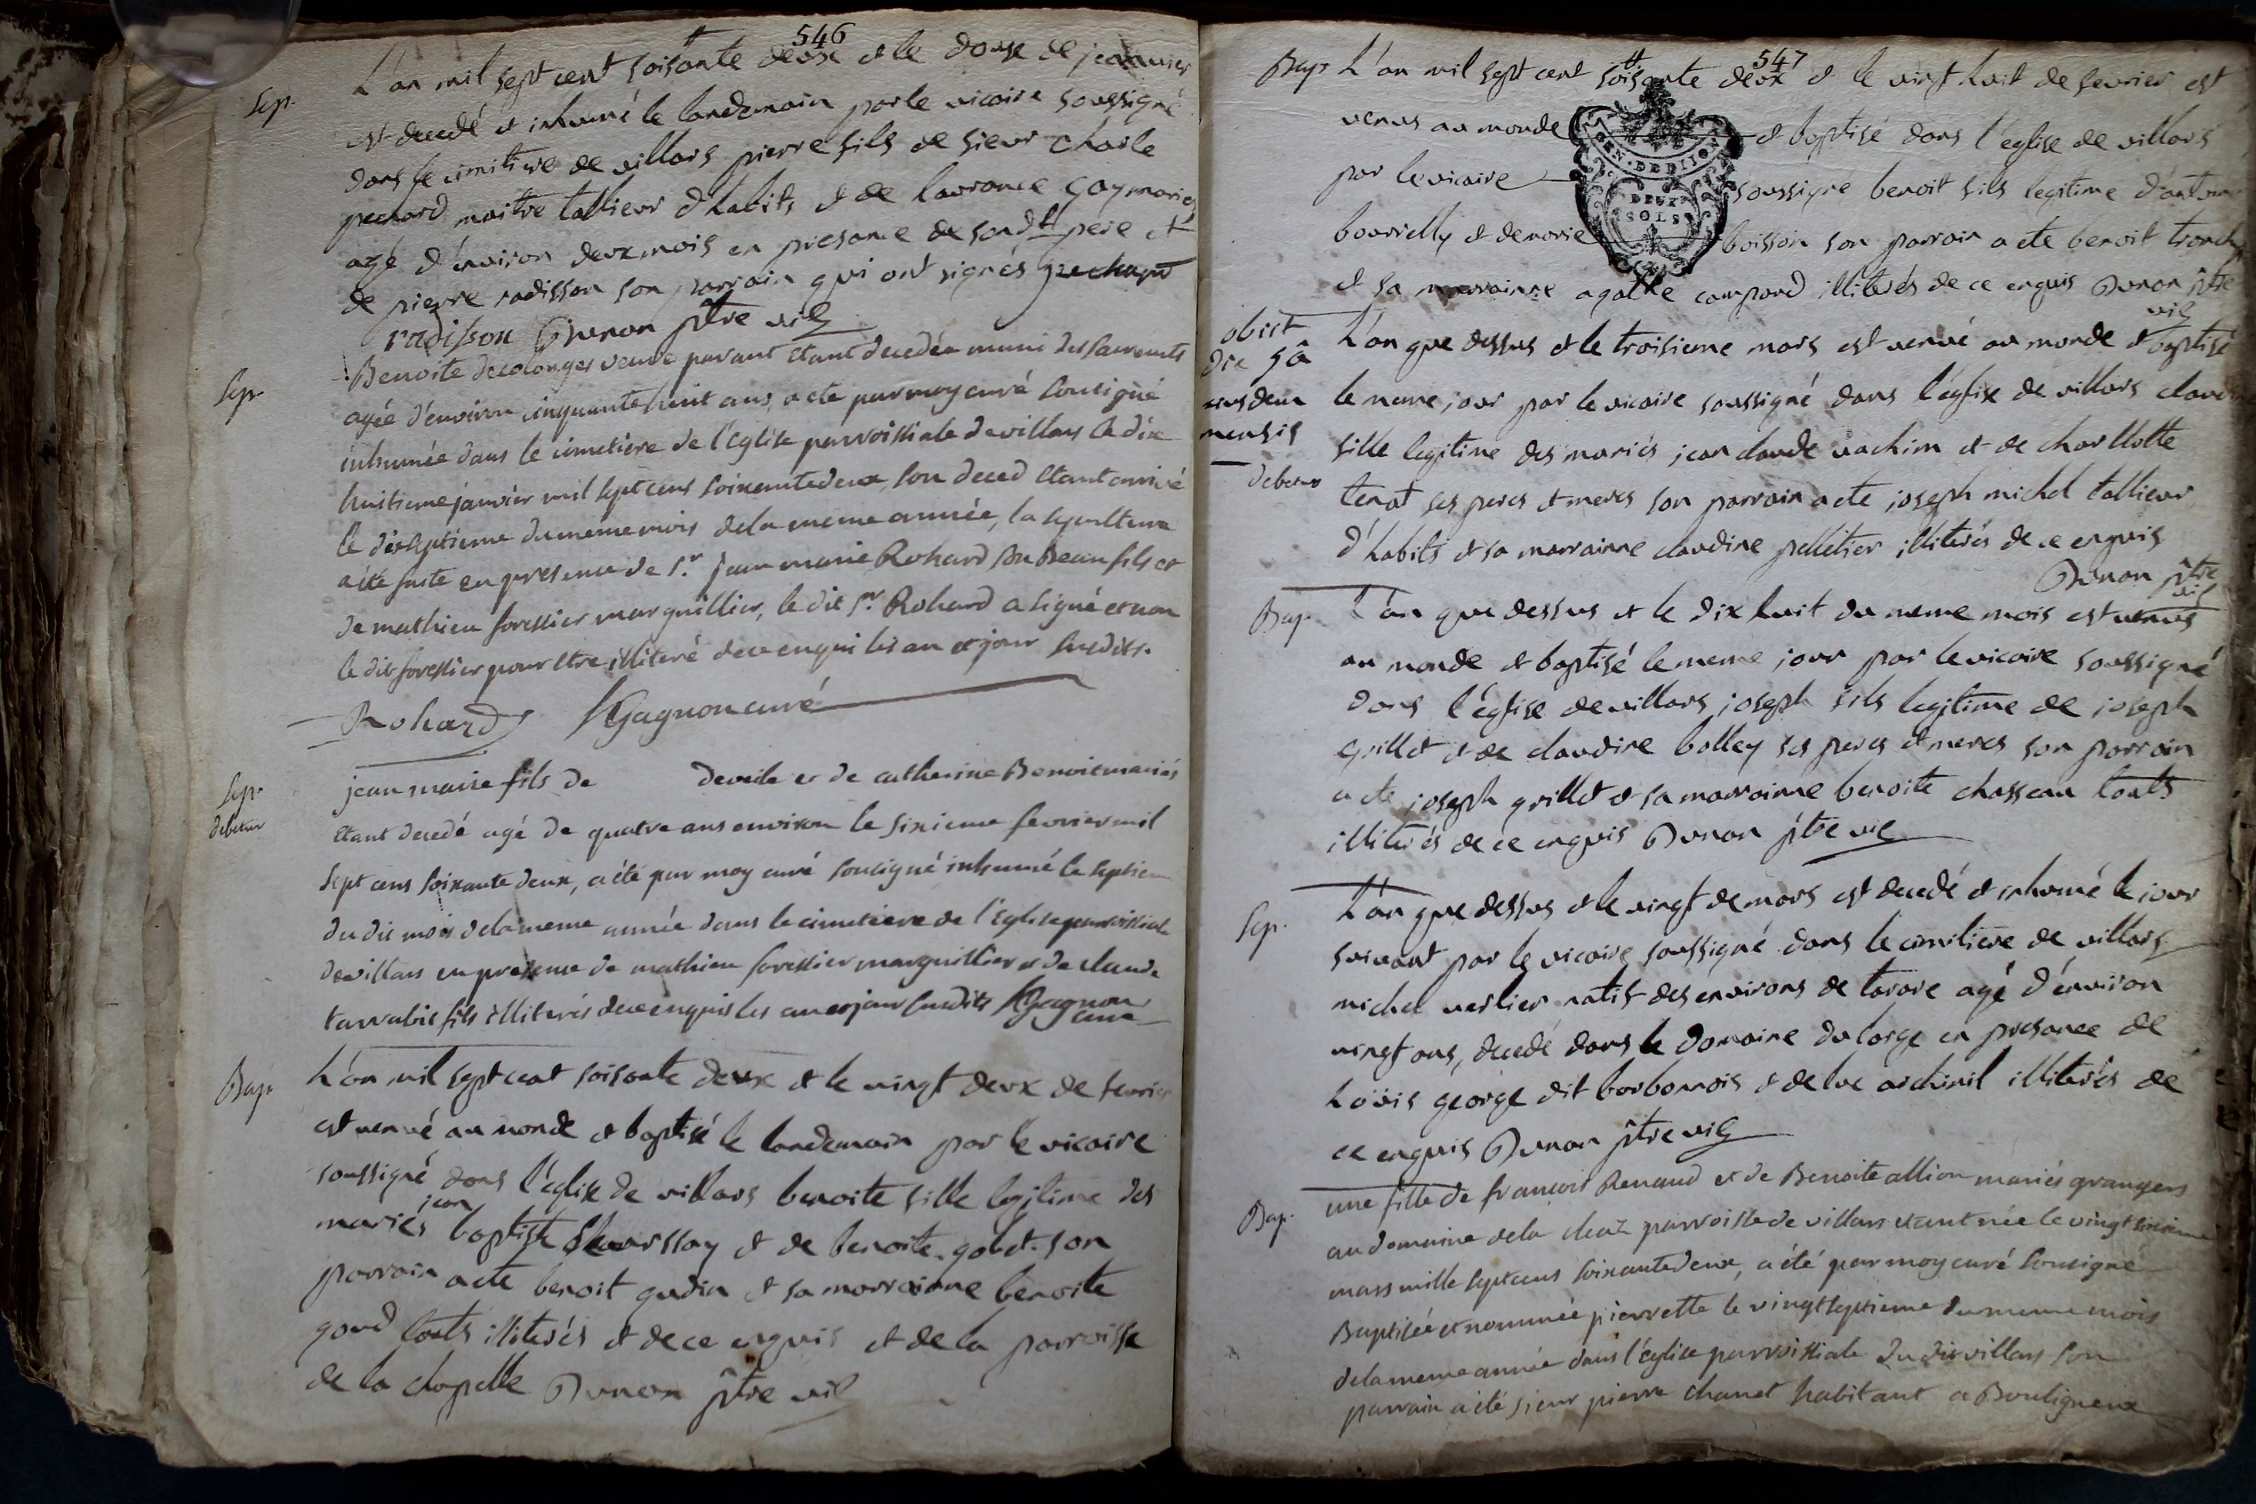 546
Sep. L'an mil sept cent soisante deux et le douse de jeanvier
est decedé et inhumé le landemain par le vicaire soussigné
dans le cimitiere de villars pierre fils de sieur charle
pechard maitre tallieur d'habits et de laurance gaymaries
agé d'environ deux mois en presance de sond.t pere et
de pierre radisson son parrain qui ont signés pechard
radisson Dunon ptre vic
Sep. Benoite decolonges veuve parant etant decedée munie des sacrements
agée d'environ cinquante huit ans, a ete par moy curé souligné
inhumée dans le cimetiere de l'Eglise parroissiale de villars le dix
huitieme janvier mil sept cens soixante deux, son deced etant arrivé
le dixseptieme du meme mois de la meme année, la sepulture
a été faite en presence de S.r jean marie Rohard son Beau fils et
de mathieu forestier marguillier, le dit S.r Rohard a signé et non
le dit forestier pour etre illiteré de ce enquis les an et jour susdits.
Rohard Gagnon curé
Sep. debetur jean marie fils de deveile et de catherine Benoit mariés
etant decedé agé de quatre ans environ le sixieme fevrier mil
sept cens soixante deux, a été par moy curé souligné inhumé le septieme
du dit mois de la meme année dans le cimetiere de l'Eglise parroissiale
de villars en presence de mathieu forestier marguillier et de claude
fils illiterés de ce enquis les an et jour susdits Gagnon
curé
Bap. L'an mil sept cent soisante deux et le vingt deux de fevrier
est venué au monde et baptisé le landemain par le vicaire
soussigné dans l'église de villars benoite fille legitime des
jean
mariés baptiste et de benoite gobet son
parrain a ete benoit gudin et sa marrainne benoite
goud touts illiterés et de ce enquis et de la parroisse
de la chapelle Dunon ptre vic
547
Bap. L'an mil sept cent soisante deux et le vingt huit de fevrier est
venus au monde et baptisé dans l'église de villars
par le vicaire soussigné benoit fils legitime d'antoine
GEN. DE DIJON
DEUX
SOLS
bourrelly et de marie boisson son parrain a ete benoit
et sa marrainne agathe compard illiterés de ce enquis Dunon ptre
vic
obiit
die 5â
ejusdem
mensis
debetur
L'an que dessus et le troisieme mars est venué au monde et baptisé
le meme jour par le vicaire soussigné dans l'église de villars
fille legitime des mariés jean claude vachim et de charllotte
tenat ses peres et meres son parrain a ete joseph michel tallieur
d'habits et sa marrainne claudine pelletier illiterés de ce enquis
Dunon ptre
vic
Bap. L'an que dessus et le dix huit du meme mois est venus
au monde et baptisé le meme jour par le vicaire soussigné
dans l'église de villars joseph fils legitime de joseph
grillet et de claudine bolley ses peres et meres son parrain
a ete joseph grillet et sa marrainne benoite chasseau touts
illiterés de ce enquis Dunon ptre vic
Sep. L'an que dessus et le vingt de mars est decedé et inhumé le jour
suivant par le vicaire soussigné dans le cimitiere de villars
michel verlier natif des environs de tarare agé d'environ
vingt ans, decedé dans le domaine du large en presance de
Loüis george dit barbonois et de luc archinil illiterés de
ce enquis Dunon ptre vic
Bap. une fille de francois Renaud et de Benoite allion mariés grangers
au domaine de la chaz parroisse de villars etant née le vingt sixieme
mars mille sept cens soixante deux, a été par moy curé souligné
Baptisée et nommée pierrette le vingt septieme du meme mois
de la meme année dans l'église parroissiale du dit villars son
parrain a été sieur pierre chanet habitant a Bouligneux